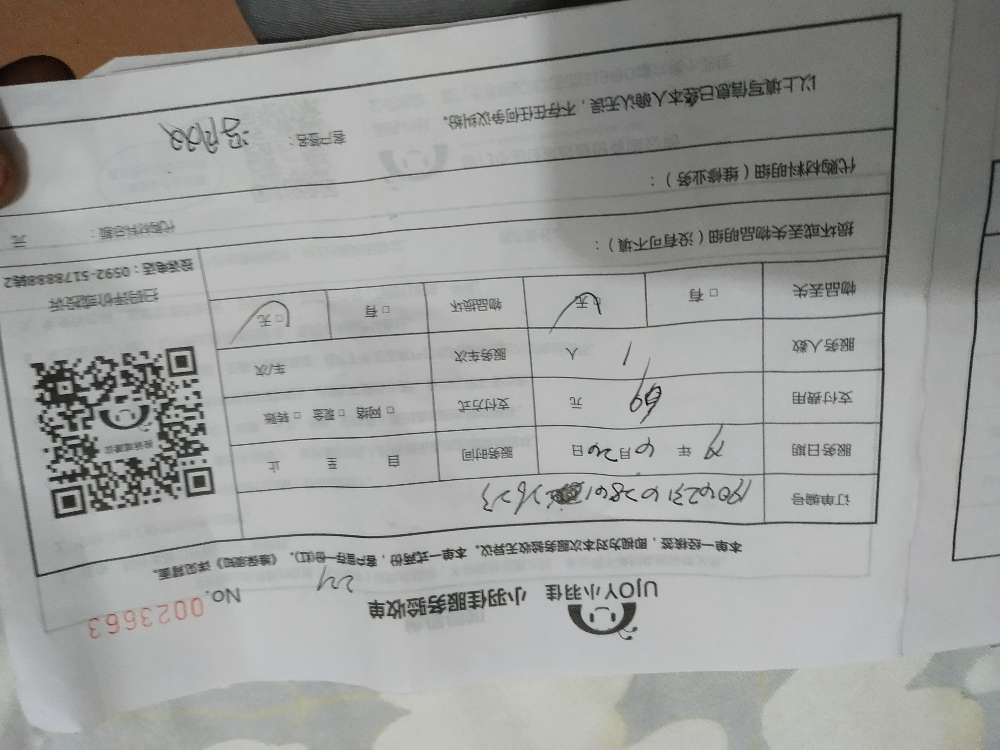 UJOY小羽佳 小羽佳服务验收单
No. 0023663
本单一经核签，即视为对本次服务验收无异议。本单一式两份，客户留存一份(红)。《维保须知》详见背面。
订单编号
服务日期 19 年 6 月 26 日 服务时间 自 至 止
支付费用 69 元 支付方式 □ 网络 □ 现金 □ 转账
服务人数 1 人 服务车次 车/次
物品丢失 □ 有 □ 无 物品损坏 □ 有 □ 无
投诉或建议
扫码评价或投诉
投诉电话：0592-5178888转2
损坏或丢失物品明细（没有可不填）：
代购材料明细（维修业务）：
代购材料总额： 元
以上填写信息已经本人确认无误，不存在任何争议纠纷。
客户签名：